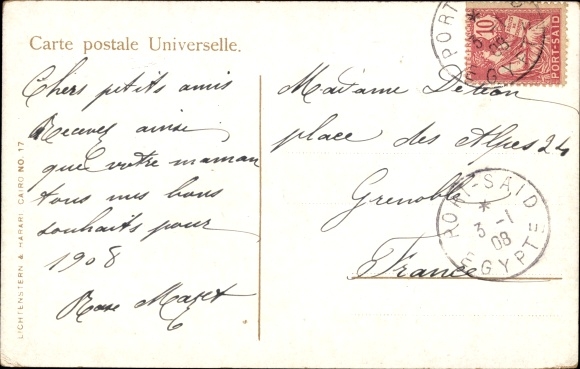 Carte postale Universelle.
Chers petits amis
Recevez ainsi
que votre maman
tous mes bons
souhaits pour
1908
Rose
LICHTENSTERN & HARARI, CAIRO NO. 17
PORT-SAID
10
PORT-SAID
* 3 08
EGYPTE
Madame
place des Alpes 24
Grenoble
France
PORT-SAID
*
3 -1
08
EGYPTE